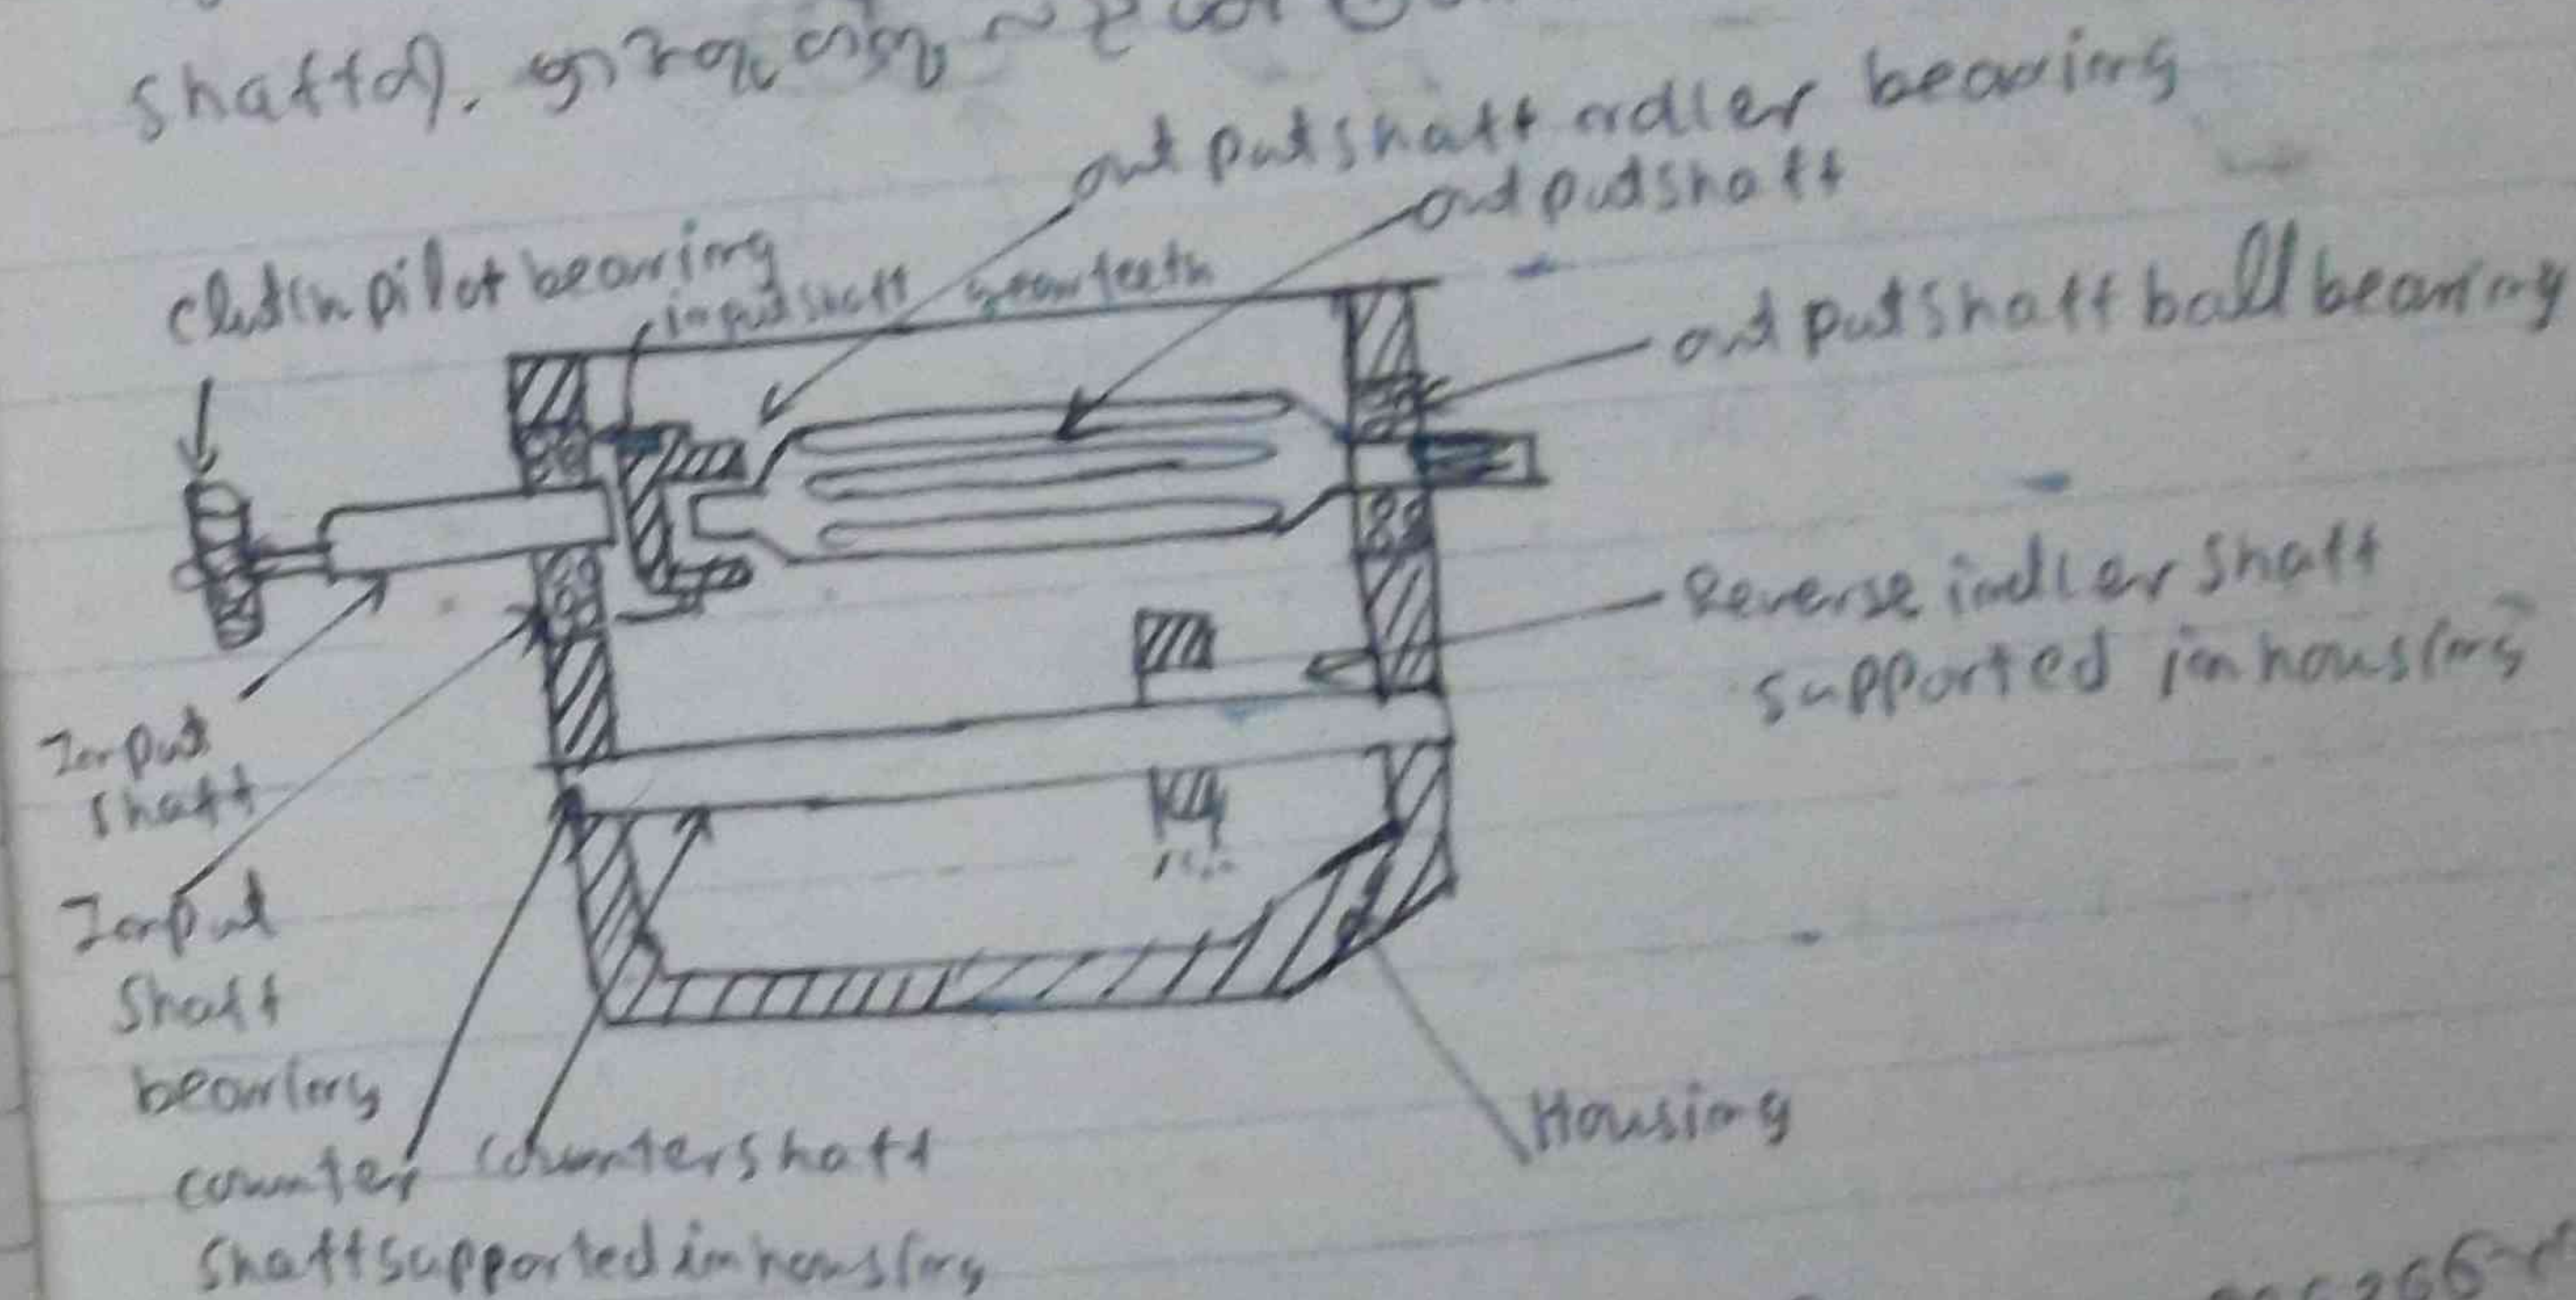 shaft
out put shaft ordler bearing
out put shaft
clutch pilot bearing
input shaft gear teeth
out put shaft ball bearing
Reverse indler shaft
supported in housing
Input
shaft
Input
shaft
bearing
counter countershaft
shaft supported in housing
Housing